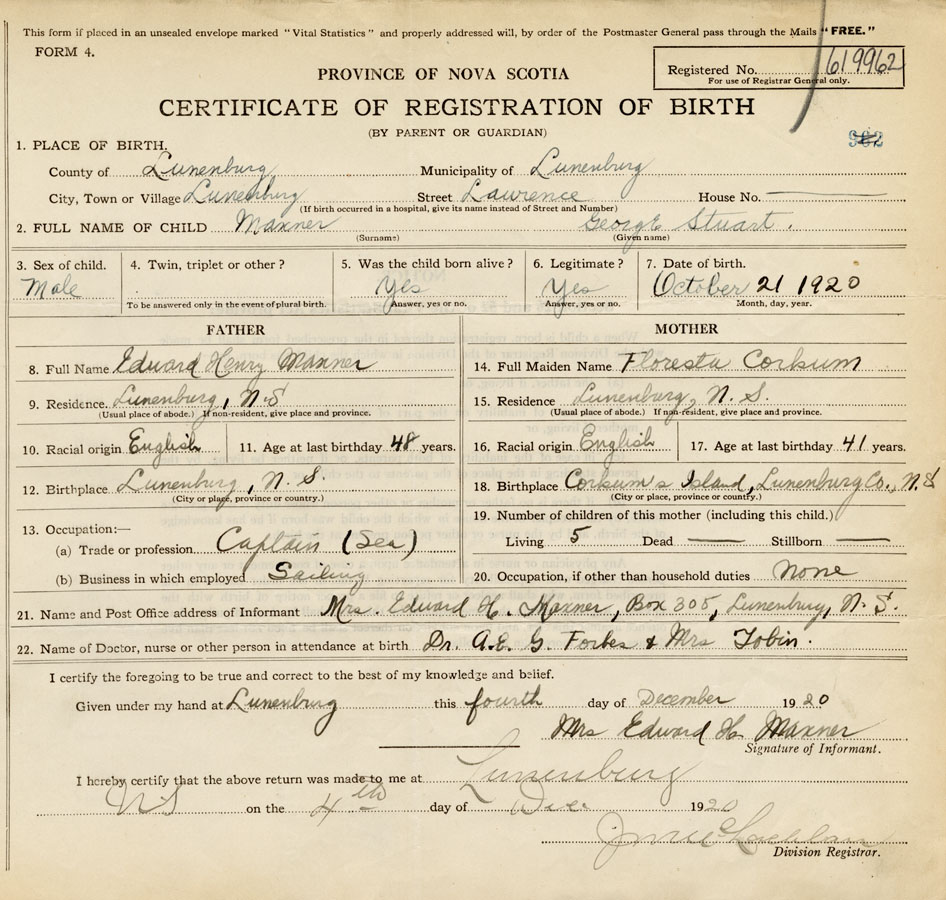 This form if placed in an unsealed envelope marked "Vital Statistics" and properly addressed will, by order of the Postmaster General pass through the Mails "FREE."
FORM 4.
Registered No. 619962
For use of Registrar General only.
PROVINCE OF NOVA SCOTIA
CERTIFICATE OF REGISTRATION OF BIRTH
(BY PARENT OR GUARDIAN)
962
1. PLACE OF BIRTH.
County of Lunenburg Municipality of Lunenburg
City, Town or Village Lunenburg Street Lawrence House No.
(If birth occurred in a hospital, give its name instead of Street and Number)
2. FULL NAME OF CHILD Maxner George Stuart.
(Surname) (Given name)
3. Sex of child. 4. Twin, triplet or other? 5. Was the child born alive? 6. Legitimate? 7. Date of birth.
Male Yes Yes October 21 1920
To be answered only in the event of plural birth. Answer, yes or no. Answer, yes or no. Month, day, year.
FATHER MOTHER
8. Full Name Edward Henry Maxner 14. Full Maiden Name Floresta Corkum
9. Residence. Lunenburg, N.S 15. Residence Lunenburg, N. S.
(Usual place of abode.) If non-resident, give place and province. (Usual place of abode.) If non-resident, give place and province.
10. Racial origin English 11. Age at last birthday 48 years. 16. Racial origin English 17. Age at last birthday 41 years.
12. Birthplace Lunenburg, N. S. 18. Birthplace Corkum's Island, Lunenburg Co., N.S
(City or place, province or country.) (City or place, province or country.)
13. Occupation:— 19. Number of children of this mother (including this child.)
(a) Trade or profession Captain (Sea) Living 5 Dead — Stillborn —
(b) Business in which employed Sailing 20. Occupation, if other than household duties None
21. Name and Post Office address of Informant Mrs. Edward H. Maxner, Box 305, Lunenburg, N. S.
22. Name of Doctor, nurse or other person in attendance at birth Dr. A.E. G. Forbes & Mrs Tobin.
I certify the foregoing to be true and correct to the best of my knowledge and belief.
Given under my hand at Lunenburg this fourth day of December 1920
Mrs Edward H. Maxner
Signature of Informant.
I hereby certify that the above return was made to me at Lunenburg
NS on the 4th day of Dec. 1920
Division Registrar.